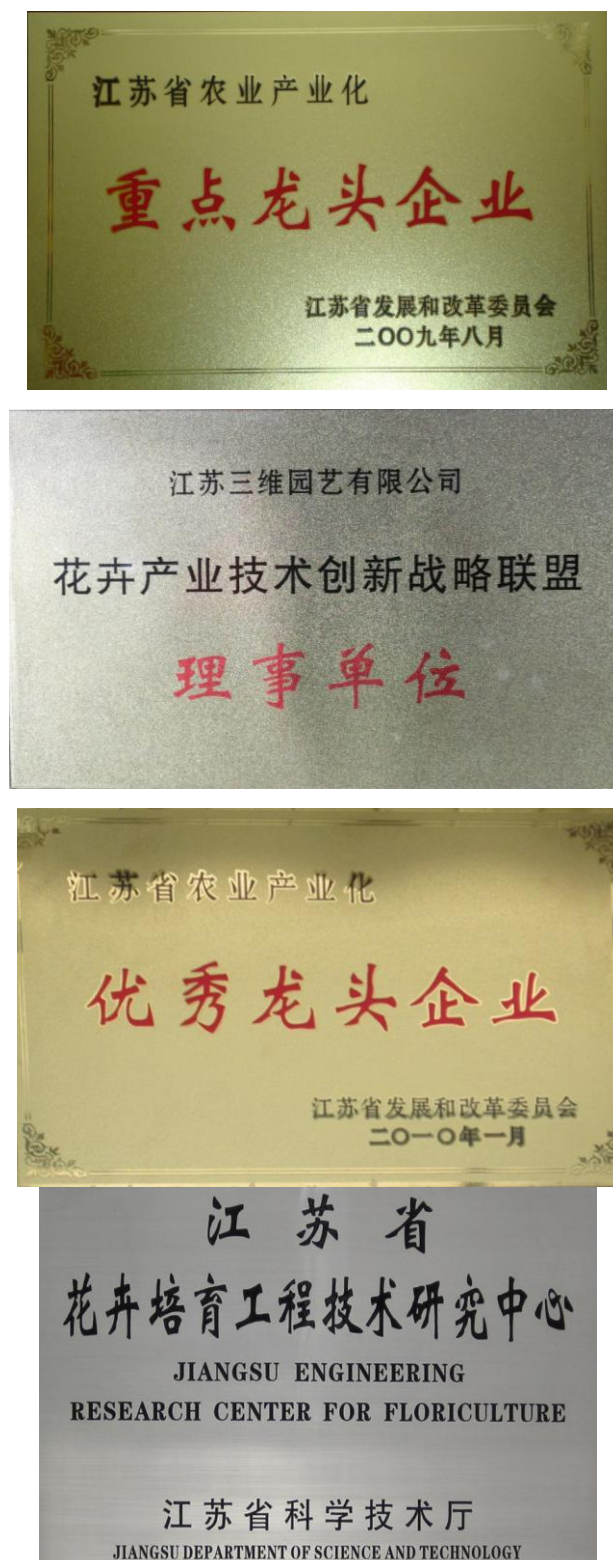 江苏省农业产业化
重点龙头企业
江苏省发展和改革委员会
二〇〇九年八月
江苏三维园艺有限公司
花卉产业技术创新战略联盟
理事单位
江苏省农业产业化
优秀龙头企业
江苏省发展和改革委员会
二〇一〇年一月
江苏省
花卉培育工程技术研究中心
JIANGSU ENGINEERING
RESEARCH CENTER FOR FLORICULTURE
江苏省科学技术厅
JIANGSU DEPARTMENT OF SCIENCE AND TECHNOLOGY